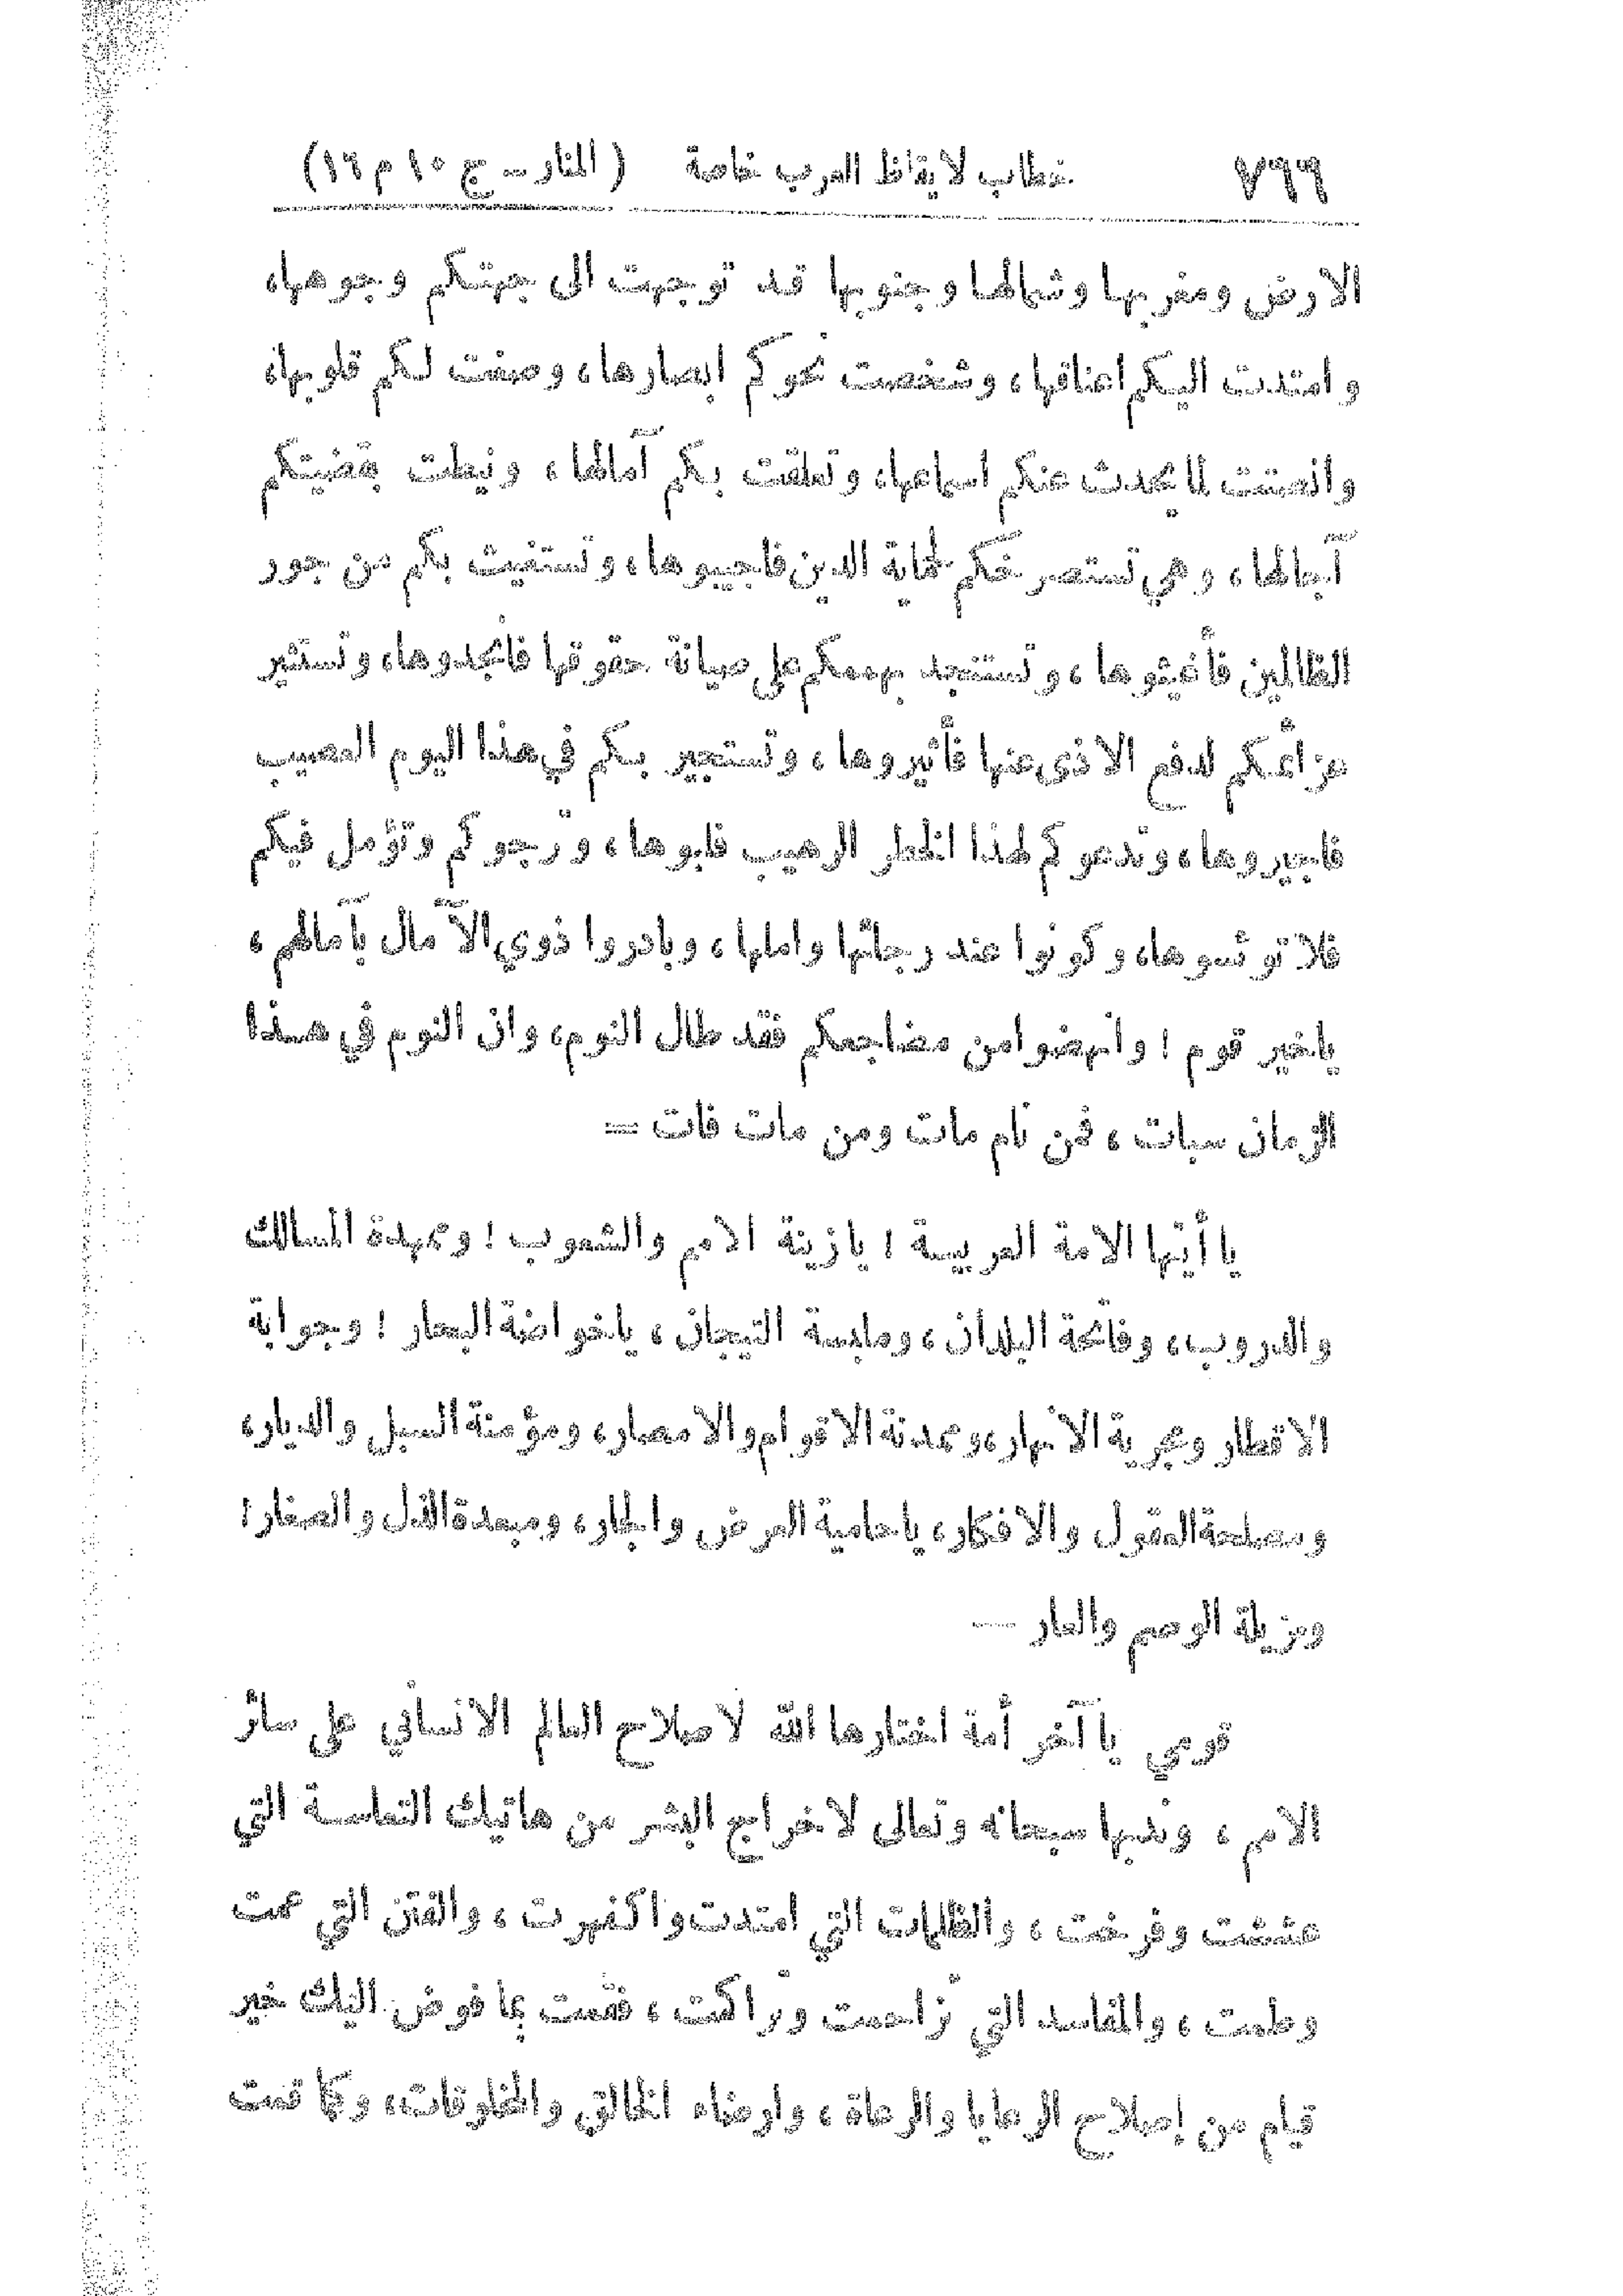 ٧٦٦ خطاب لايقاظ العرب خاصة (المنار ـ ج ١٠ م ١٦)
الارض ومغربها وشمالها وجنوبها قد توجهت الى جهتكم وجوهها،
وامتدت اليكم اعناقها، وشخصت نحوكم ابصارها، وصغت لكم قلوبها،
وانصتت لما يحدث عنكم اسماعها، وتعلقت بكم آمالها، ونيطت بقضيتكم
آجالها، وهي تستصرخكم لحماية الدين فاجيبوها، وتستغيث بكم من جور
الظالمين فأغيثوها، وتستنجد بهممكم على صيانة حقوقها فأنجدوها، وتستثير
عزائمكم لدفع الاذى عنها فأثيروها، وتستجير بكم في هذا اليوم العصيب
فاجيروها، وتدعوكم لهذا الخطر الرهيب فلبوها، وترجوكم وتؤمل فيكم
فلا توئسوها، وكونوا عند رجائها واملها، وبادروا ذوي الآمال بآمالهم،
ياخير قوم! وانهضوا من مضاجعكم فقد طال النوم، وان النوم في هذا
الزمان سبات، فمن نام مات ومن مات فات =
يا أيتها الامة العربية! يازينة الامم والشعوب! وممهدة المسالك
والدروب، وفاتحة البلدان، وملبسة التيجان، ياخواضة البحار! وجوابة
الاقطار ومجرية الانهار، وممدنة الاقوام والامصار، ومؤمنة السبل والديار،
ومصلحة العقول والافكار، ياحامية العرض والجار، ومبعدة الذل والصغار!
ومزيلة الوصم والعار —
قومي يا آخر أمة اختارها الله لاصلاح العالم الانساني على سائر
الامم، وندبها سبحانه وتعالى لاخراج البشر من هاتيك التعاسة التي
عششت وفرخت، والظلمات التي امتدت واكفهرت، والفتن التي عمت
وطمت، والمفاسد التي تزاحمت وتراكمت، فقمت بما فوض اليك خير
قيام من إصلاح الرعايا والرعاة، وارضاء الخالق والمخلوقات، وكما قمت